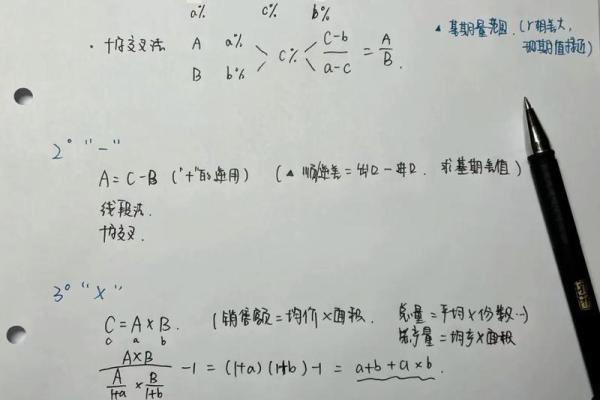 a% c% b%
· 十字交叉法 A a% C% C-b/a-c = A/B.
B b%
▲ 基期量范围. (r相差大,
现期值接近)
2° "-"
A=C-B ("+"的逆用) (▲ 顺逆差=出口-进口. 求基期差值)
线段法.
十字交叉.
3° "×"
C=A×B. (销售额=均价×面积. 总量=平均×份数…)
c a b 总产量=均产×面积
A×B/(A/1+a × B/1+b) -1 = (1+a)(1+b)-1 = a+b+a×b.